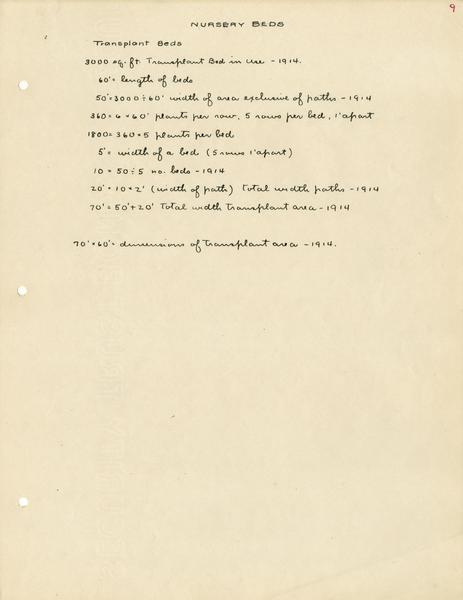 9
NURSERY BEDS
Transplant Beds
3000 sq. ft. Transplant Bed in use - 1914.
60' = length of beds
50' = 3000 ÷ 60' width of area exclusive of paths - 1914
360 = 6 × 60' plants per row, 5 rows per bed, 1' apart
1800 = 360 × 5 plants per bed
5' = width of a bed (5 rows 1' apart)
10 = 50 ÷ 5 no. beds - 1914
20' = 10 × 2' (width of path) Total width paths - 1914
70' = 50' + 20' Total width transplant area - 1914
70' × 60' = dimensions of transplant area - 1914.